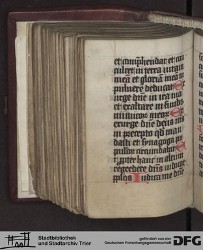 et comprehendat et con
culcet in terra vitam
meam et gloriam meam in
pulverem deducat
surge domine in ira tua
et exaltare in finibus
inimicorum meorum
exurge domine deus meus
in precepto quod man
dasti et synagoga po
pulorum circumdabit te
propter hanc in altum
regredere dominus iudicat
populos Iudica me domine
Stadtbibliothek
und Stadtarchiv Trier
gefördert von der
Deutschen Forschungsgemeinschaft
DFG